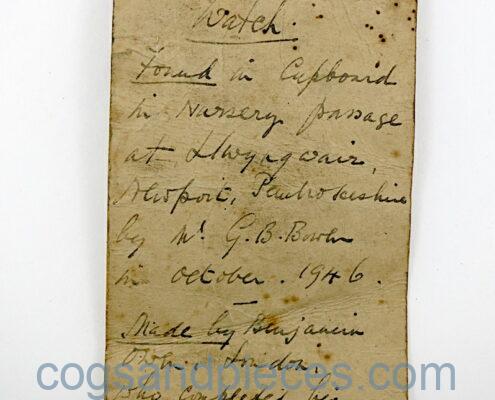 Watch.
Found in Cupboard
in Nursery passage
at Llwyngwair,
Newport, Pembrokeshire
by Mr G. B. Bowen
in October. 1946.
Made by Benjamin
London,
who completed his
cogsandpieces.com